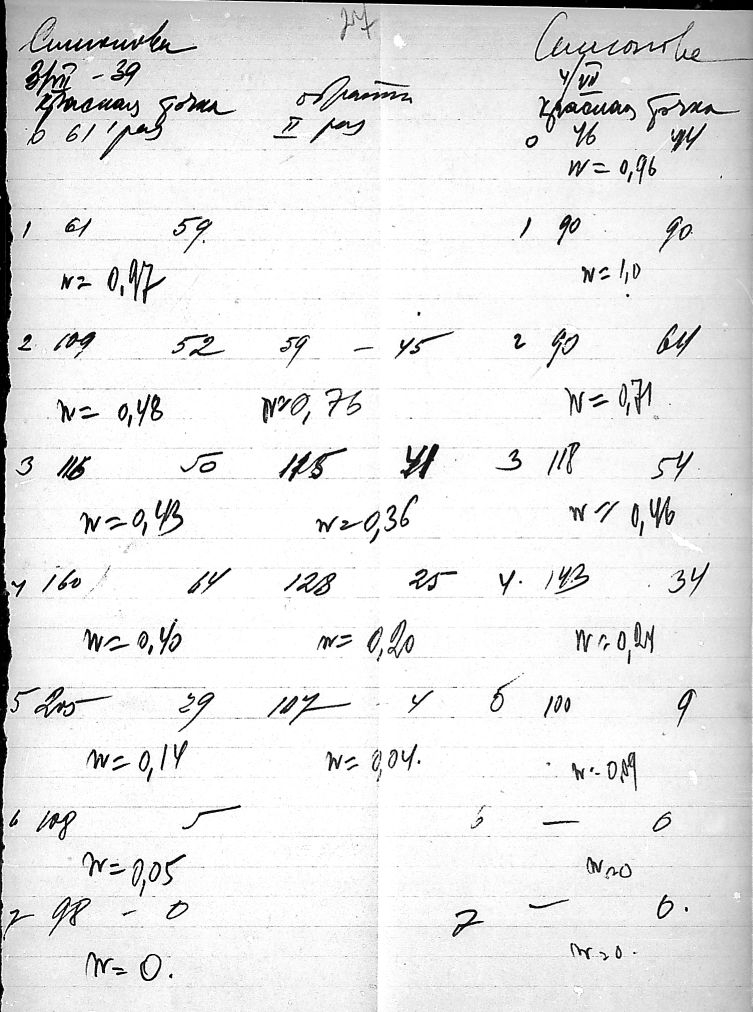 27
Симонова Симонова
3/VII - 39 4/VII
красная точка обратн красная точка
0 61 1 раз II раз 0 46 44
w = 0,96
1 61 59 1 90 90
w = 0,97 w = 1,0
2 109 52 59 - 45 2 90 64
w = 0,48 w = 0,76 w = 0,71
3 116 50 115 41 3 118 54
w = 0,43 w = 0,36 w = 0,46
4 160 64 128 25 4. 143 34
w = 0,40 w = 0,20 w = 0,24
5 205 29 107 4 5 100 9
w = 0,14 w = 0,04. w = 0,09
6 108 5 6 — 0
w = 0,05 w = 0
7 98 - 0 7 — 0.
w = 0. w = 0.